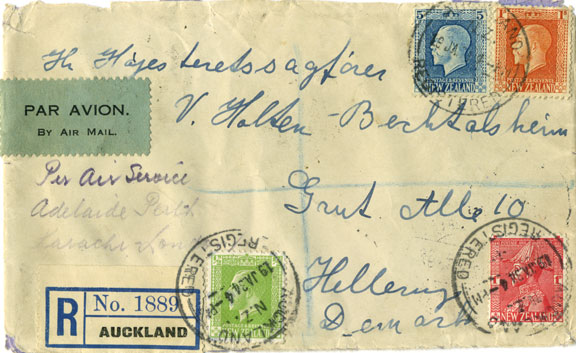 Hr Højesteretssagfører
V. Holten-Bechtolsheim
Grut Alle 10
Hellerup
Demark
PAR AVION.
By Air Mail.
Per Air Service
Adelaide Perth
Karachi
R
No. 1889
AUCKLAND
5
POSTAGE & REVENUE
NEW ZEALAND
1
NEW ZEALAND
NEW ZEALAND
REGISTERED
AUCKLAND
N.Z.
REGISTERED